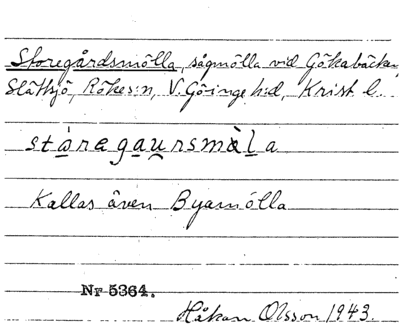 Storegårdsmölla, sågmölla vid Gökabäcken,
Slättsjö, Röke s:n, V. Göinge h:d, Krist. l.
ståragaursmöla
Kallas även Byamölla
Nr 5364.
Håkan Olsson 1943.